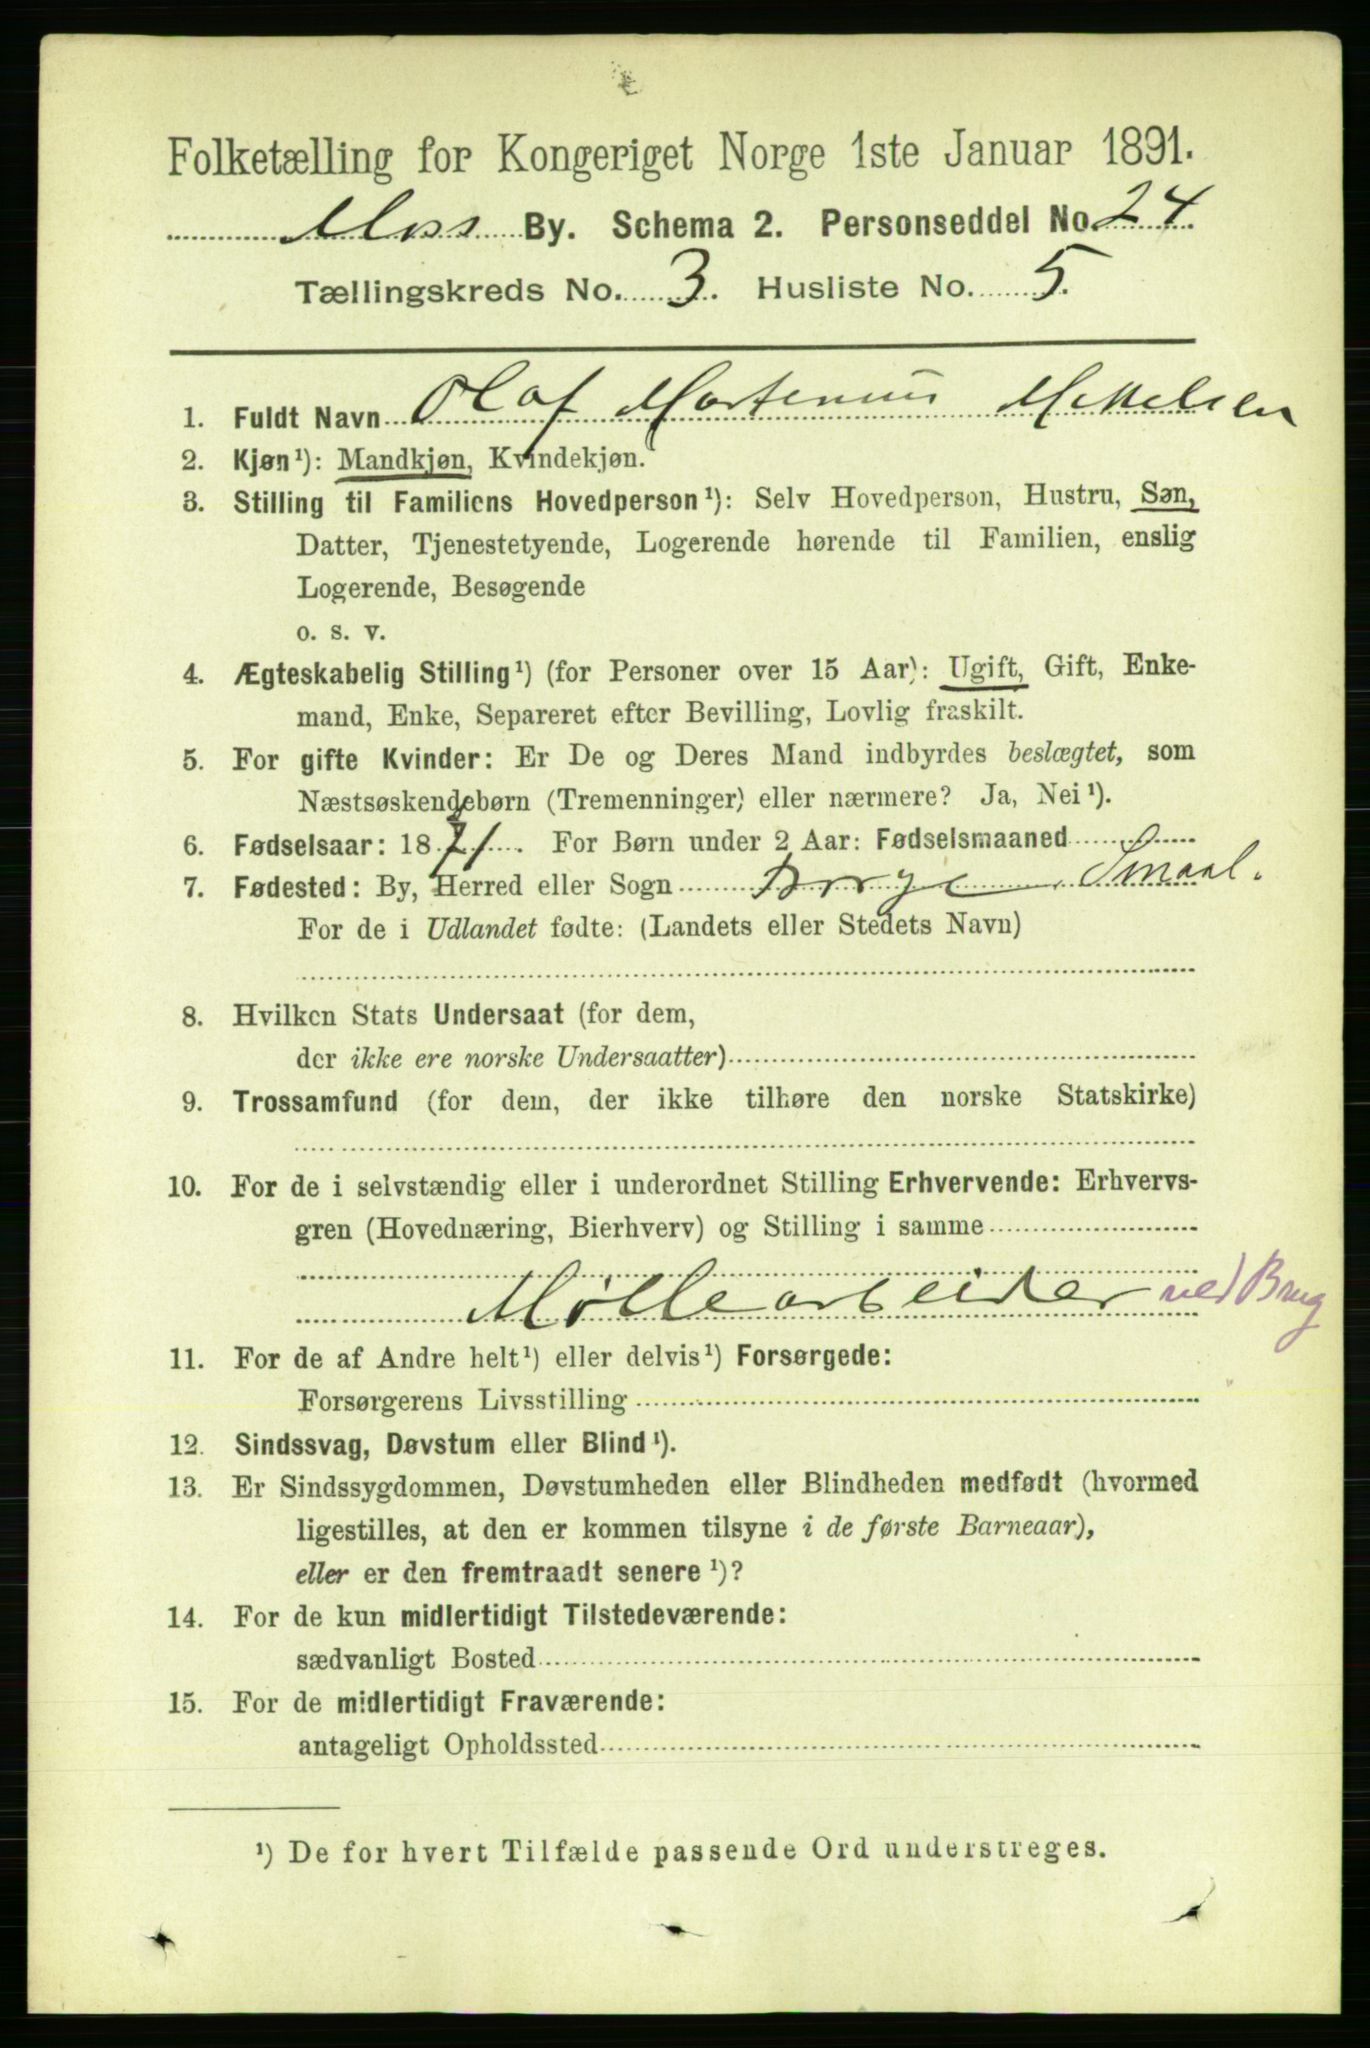 Folketælling for Kongeriget Norge 1ste Januar 1891.
Moss By. Schema 2. Personseddel No. 24.
Tællingskreds No. 3. Husliste No. 5.
1. Fuldt Navn Olaf Martenius Mikkelsen
2. Kjøn¹): Mandkjøn, Kvindekjøn.
3. Stilling til Familiens Hovedperson¹): Selv Hovedperson, Hustru, Søn,
Datter, Tjenestetyende, Logerende hørende til Familien, enslig
Logerende, Besøgende
o. s. v.
4. Ægteskabelig Stilling¹) (for Personer over 15 Aar): Ugift, Gift, Enke-
mand, Enke, Separeret efter Bevilling, Lovlig fraskilt.
5. For gifte Kvinder: Er De og Deres Mand indbyrdes beslægtet, som
Næstsøskendebørn (Tremenninger) eller nærmere? Ja, Nei¹).
6. Fødselsaar: 1871. For Børn under 2 Aar: Fødselsmaaned
7. Fødested: By, Herred eller Sogn Borge, Smaal.
For de i Udlandet fødte: (Landets eller Stedets Navn)
8. Hvilken Stats Undersaat (for dem,
der ikke ere norske Undersaatter)
9. Trossamfund (for dem, der ikke tilhøre den norske Statskirke)
10. For de i selvstændig eller i underordnet Stilling Erhvervende: Erhvervs-
gren (Hovednæring, Bierhverv) og Stilling i samme
Møllearbeider ved Brug
11. For de af Andre helt¹) eller delvis¹) Forsørgede:
Forsørgerens Livsstilling
12. Sindssvag, Døvstum eller Blind¹).
13. Er Sindssygdommen, Døvstumheden eller Blindheden medfødt (hvormed
ligestilles, at den er kommen tilsyne i de første Barneaar),
eller er den fremtraadt senere¹)?
14. For de kun midlertidigt Tilstedeværende:
sædvanligt Bosted
15. For de midlertidigt Fraværende:
antageligt Opholdssted
¹) De for hvert Tilfælde passende Ord understreges.